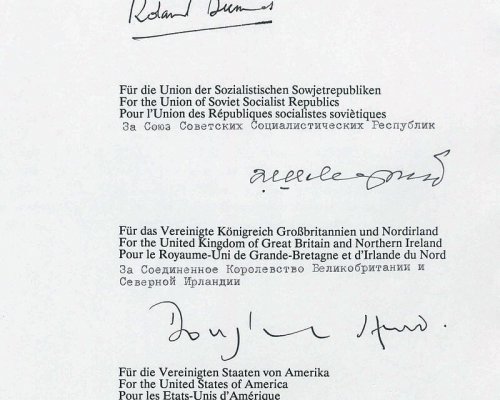 Roland Dumas
Für die Union der Sozialistischen Sowjetrepubliken
For the Union of Soviet Socialist Republics
Pour l'Union des Républiques socialistes soviètiques
За Союз Советских Социалистических Республик
Für das Vereinigte Königreich Großbritannien und Nordirland
For the United Kingdom of Great Britain and Northern Ireland
Pour le Royaume-Uni de Grande-Bretagne et d'Irlande du Nord
За Соединенное Королевство Великобритании и
Северной Ирландии
Douglas Hurd.
Für die Vereinigten Staaten von Amerika
For the United States of America
Pour les Etats-Unis d'Amérique